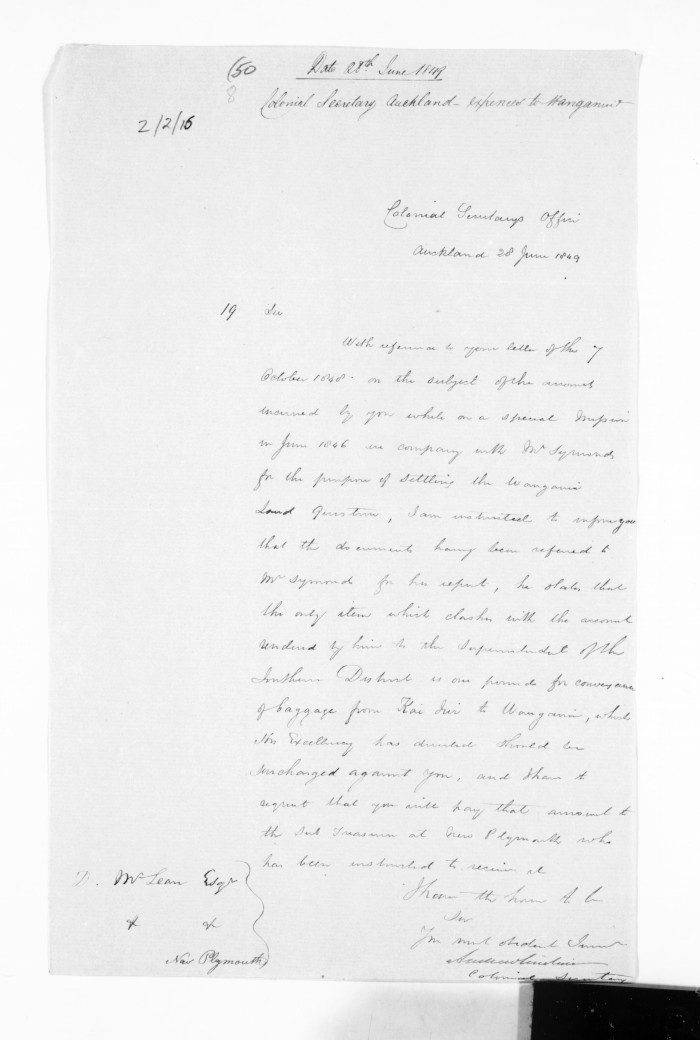 (50
Date 28th June 1849
8
Colonial Secretary Auckland - expences to Wanganui
2/2/16
Colonial Secretarys Office
Auckland 28 June 1849
19 Sir
With reference to your letter of the 7
October 1848 on the subject of the amounts
incurred by you while on a special Mission
in June 1846 in company with Mr Symonds
for the purpose of settling the Wanganui
Land Question, I am instructed to inform you
that the documents having been referred to
Mr Symond for his report, he states that
the only item which clashes with the account
rendered by him to the Superintendent of the
Southern District is one pound for conveyance
of baggage from Kai Iwi to Wanganui, which
His Excellency has directed should be
surcharged against you, and I have to
request that you will pay that amount to
the Sub Treasurer at New Plymouth who
has been instructed to receive it
I have the honor to be
Sir
Your most obedient Servant
Andrew Sinclair
Colonial Secretary
D. McLean Esqr
& &
New Plymouth